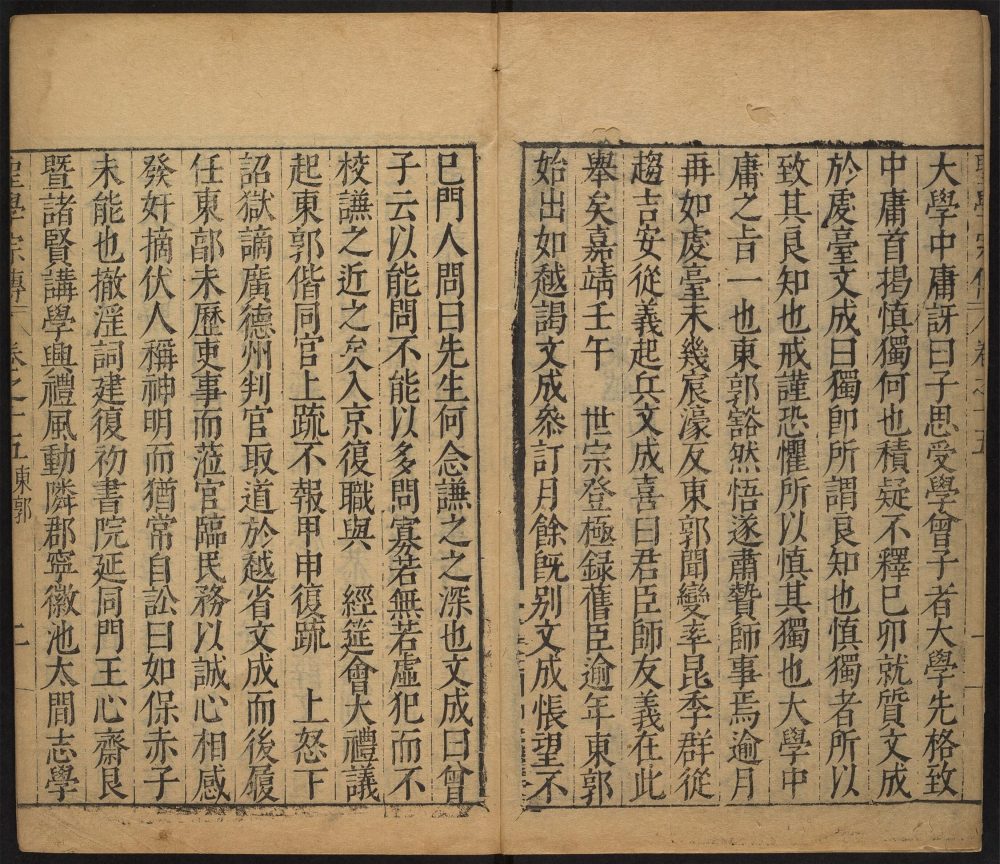 聖學宗傳 卷之十五
大學中庸訝曰子思受學曾子者大學先格致
中庸首揭慎獨何也積疑不釋已卯就質文成
於虔臺文成曰獨卽所謂良知也慎獨者所以
致其良知也戒謹恐懼所以慎其獨也大學中
庸之旨一也東郭豁然悟遂肅贄師事焉逾月
再如虔臺未幾宸濠反東郭聞變率昆季群從
趨吉安從義起兵文成喜曰君臣師友義在此
舉矣嘉靖壬午 世宗登極録舊臣逾年東郭
始出如越謁文成叅訂月餘旣别文成悵望不
已門人問曰先生何念謙之之深也文成曰曾
子云以能問不能以多問寡若無若虛犯而不
校謙之近之矣入京復職與 經筵會大禮議
起東郭偕同官上疏不報甲申復疏 上怒下
詔獄謫廣德州判官取道於越省文成而後履
任東郭未歷吏事而蒞官臨民務以誠心相感
發奸摘伏人稱神明而猶常自訟曰如保赤子
未能也撤淫詞建復初書院延同門王心齋艮
暨諸賢講學興禮風動隣郡寧徽池太間志學
聖學宗傳 卷之十五 東郭 二